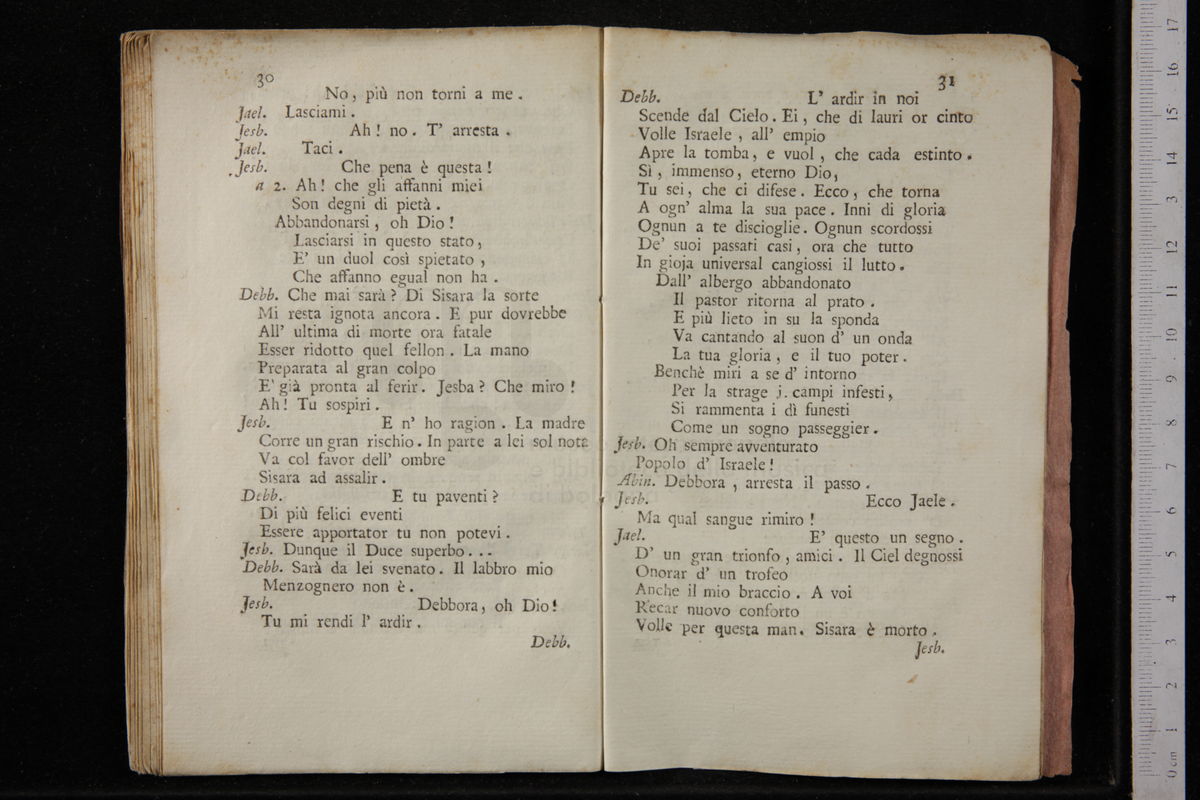 30
No, più non torni a me.
Jael. Lasciami.
Jesb. Ah! no. T' arresta.
Jael. Taci.
Jesb. Che pena è questa!
a 2. Ah! che gli affanni miei
Son degni di pietà.
Abbandonarsi, oh Dio!
Lasciarsi in questo stato,
E' un duol così spietato,
Che affanno egual non ha.
Debb. Che mai sarà? Di Sisara la sorte
Mi resta ignota ancora. E pur dovrebbe
All' ultima di morte ora fatale
Esser ridotto quel fellon. La mano
Preparata al gran colpo
E' già pronta al ferir. Jesba? Che miro!
Ah! Tu sospiri.
Jesb. E n' ho ragion. La madre
Corre un gran rischio. In parte a lei sol nota
Va col favor dell' ombre
Sisara ad assalir.
Debb. E tu paventi?
Di più felici eventi
Essere apportator tu non potevi.
Jesb. Dunque il Duce superbo...
Debb. Sarà da lei svenato. Il labbro mio
Menzognero non è.
Jesb. Debbora, oh Dio!
Tu mi rendi l' ardir.
Debb.
31
Debb. L' ardir in noi
Scende dal Cielo. Ei, che di lauri or cinto
Volle Israele, all' empio
Apre la tomba, e vuol, che cada estinto.
Sì, immenso, eterno Dio,
Tu sei, che ci difese. Ecco, che torna
A ogn' alma la sua pace. Inni di gloria
Ognun a te discioglie. Ognun scordossi
De' suoi passati casi, ora che tutto
In gioja universal cangiossi il lutto.
Dall' albergo abbandonato
Il pastor ritorna al prato.
E più lieto in su la sponda
Va cantando al suon d' un onda
La tua gloria, e il tuo poter.
Benchè miri a se d' intorno
Per la strage j. campi infesti,
Si rammenta i dì funesti
Come un sogno passeggier.
Jesb. Oh sempre avventurato
Popolo d' Israele!
Abin. Debbora, arresta il passo.
Jesb. Ecco Jaele.
Ma qual sangue rimiro!
Jael. E' questo un segno.
D' un gran trionfo, amici. Il Ciel degnossi
Onorar d' un trofeo
Anche il mio braccio. A voi
Recar nuovo conforto
Volle per questa man. Sisara è morto.
Jesb.
0 cm 1 2 3 4 5 6 7 8 9 10 11 12 3 14 15 16 17